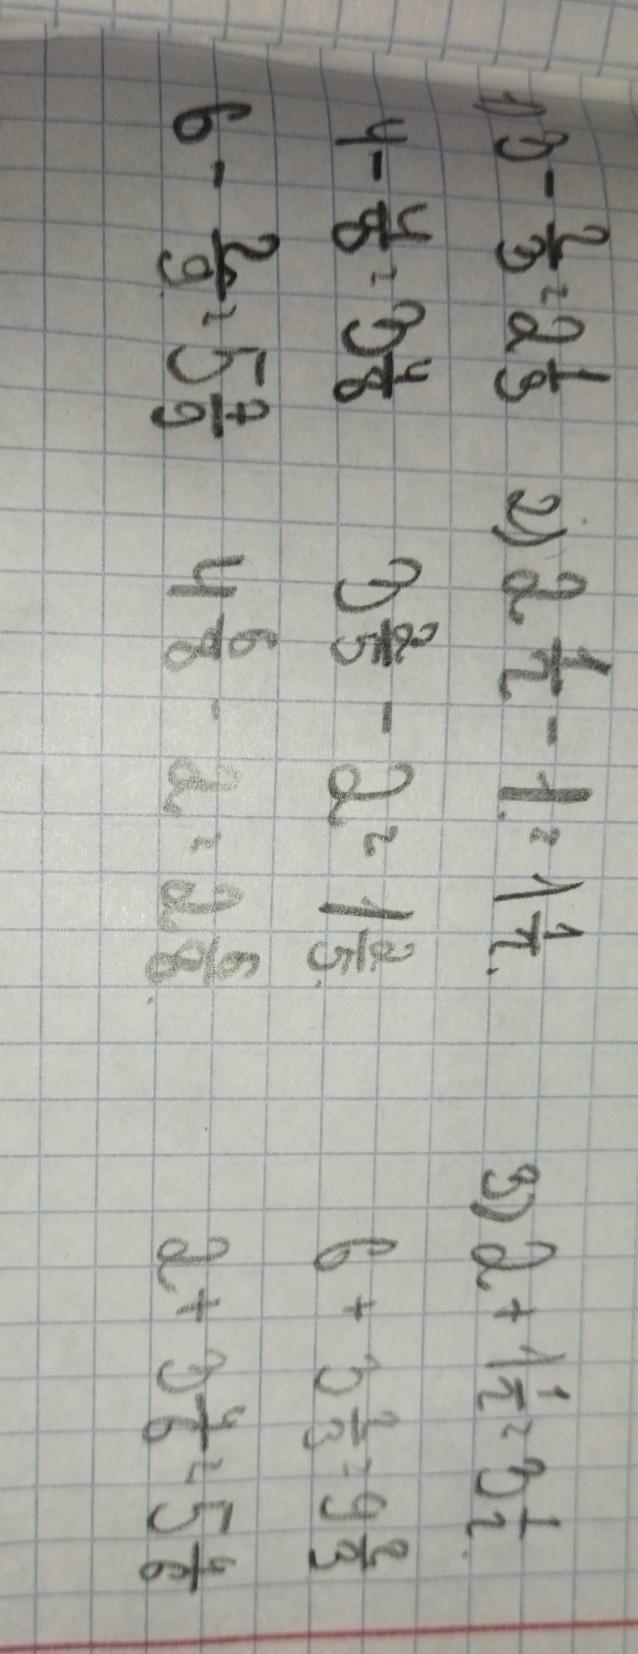 1) 3 - 2/3 = 2 1/3 2) 2 1/2 - 1 = 1 1/2. 3) 2 + 1 1/2 = 3 1/2.
4 - 4/8 = 3 4/8 3 2/5 - 2 = 1 2/5. 6 + 3 2/3 = 9 2/3
6 - 2/9 = 5 7/9 4 6/8 - 2 = 2 6/8. 2 + 3 4/6 = 5 4/6